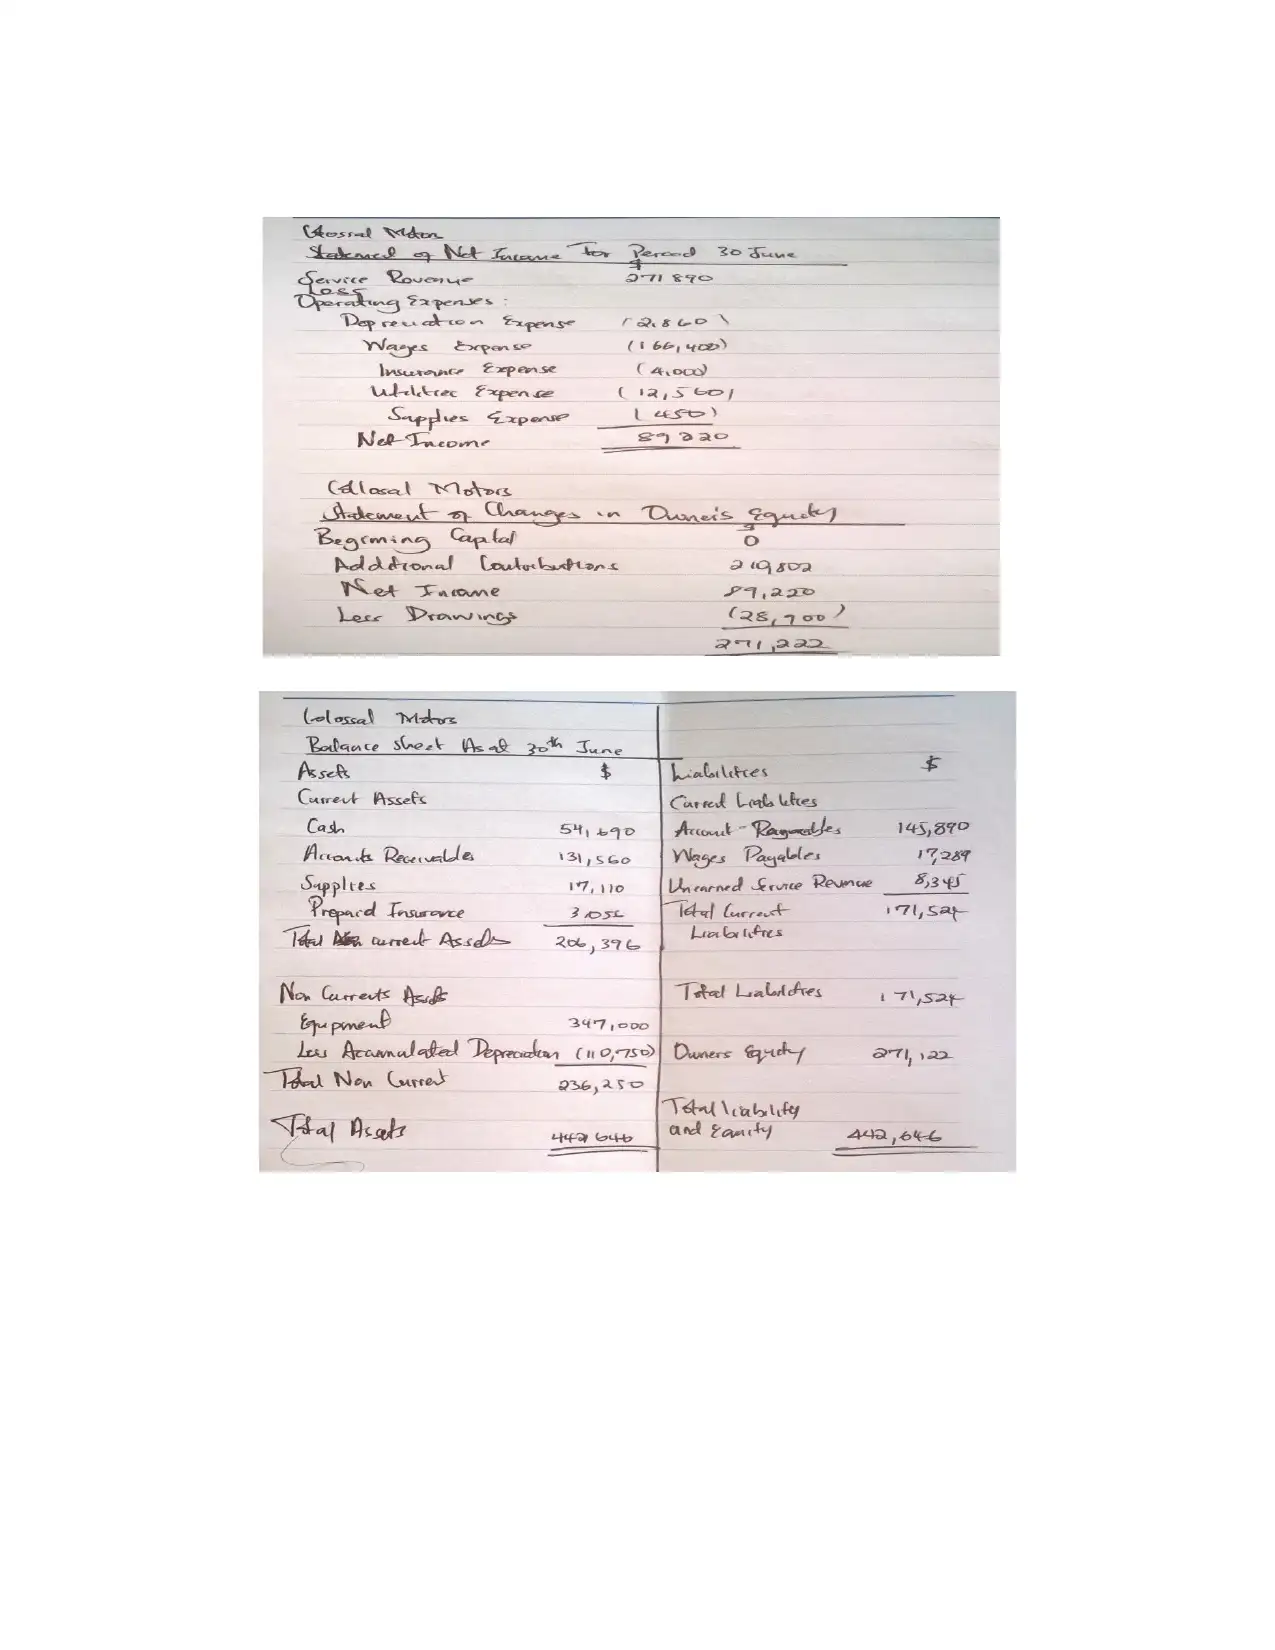 Colossal Motors
Statement of Net Income For Period 30 June
$
Service Revenue 271 890
Less
Operating Expenses:
Depreciation Expense (2,860)
Wages Expense (166,400)
Insurance Expense (4,000)
Utilities Expense (12,560)
Supplies Expense (450)
Net Income 89220
Collosal Motors
Statement of Changes in Owner's Equity
$
Beginning Capital 0
Additional Contributions 219802
Net Income 89,220
Less Drawings (28,700)
271,222
Colossal Motors
Balance sheet As at 30th June
Assets $
Current Assets
Cash 54,690
Accounts Receivables 131,560
Supplies 17,110
Prepaid Insurance
Total current Assets 206,396
Non Currents Assets
Equpment 347,000
Less Accumulated Depreciation (110,750)
Total Non Current 236,250
Total Assets 442646
Liabilities $
Current Liabilities
Account Payables 145,890
Wages Payables 17,289
Unearned Service Revenue 8,345
Total Current 171,524
Liabilities
Total Liabilities 171,524
Owners Equity 271,122
Total liability
and Equity 442,646